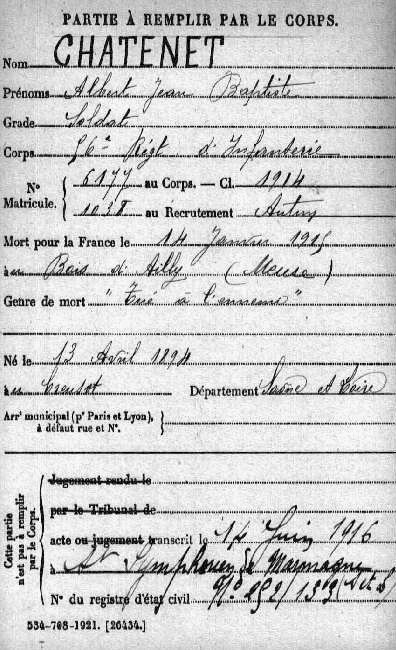 PARTIE À REMPLIR PAR LE CORPS.
Nom CHATENET
Prénoms Albert Jean Baptiste
Grade Soldat
Corps 56e Régt d'Infanterie
N° Matricule. { 6177 au Corps. — Cl. 1914
1038 au Recrutement Autun
Mort pour la France le 14 Janvier 1915
à au Bois d'Ailly (Meuse)
Genre de mort "Tué à l'ennemi"
Né le 13 Avril 1894
au Creusot Département Saône et Loire
Arrt municipal (pr Paris et Lyon), à défaut rue et N°. }
Cette partie n'est pas à remplir par le Corps.
Jugement rendu le
par le Tribunal de
acte ou jugement transcrit le 14 Juin 1916
à St Symphorien de Marmagne
N° du registre d'état civil N° 252/133
534-708-1921. [26434.]